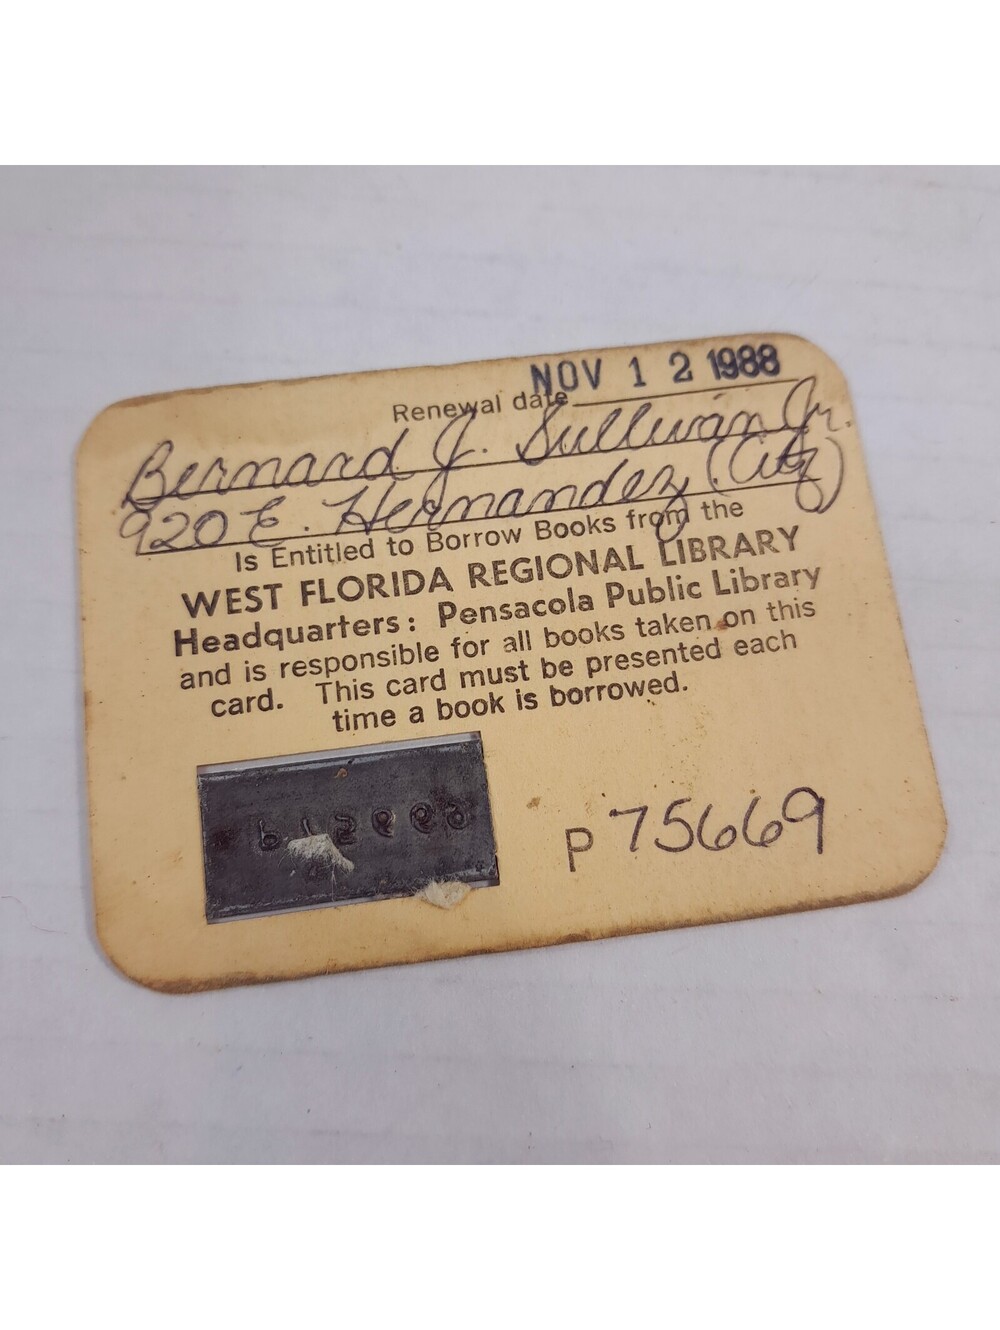 NOV 12 1988
Renewal date
Bernard J. Sullivan Jr.
920 E. Hernandez (City)
Is Entitled to Borrow Books from the
WEST FLORIDA REGIONAL LIBRARY
Headquarters: Pensacola Public Library
and is responsible for all books taken on this
card. This card must be presented each
time a book is borrowed.
P 75669